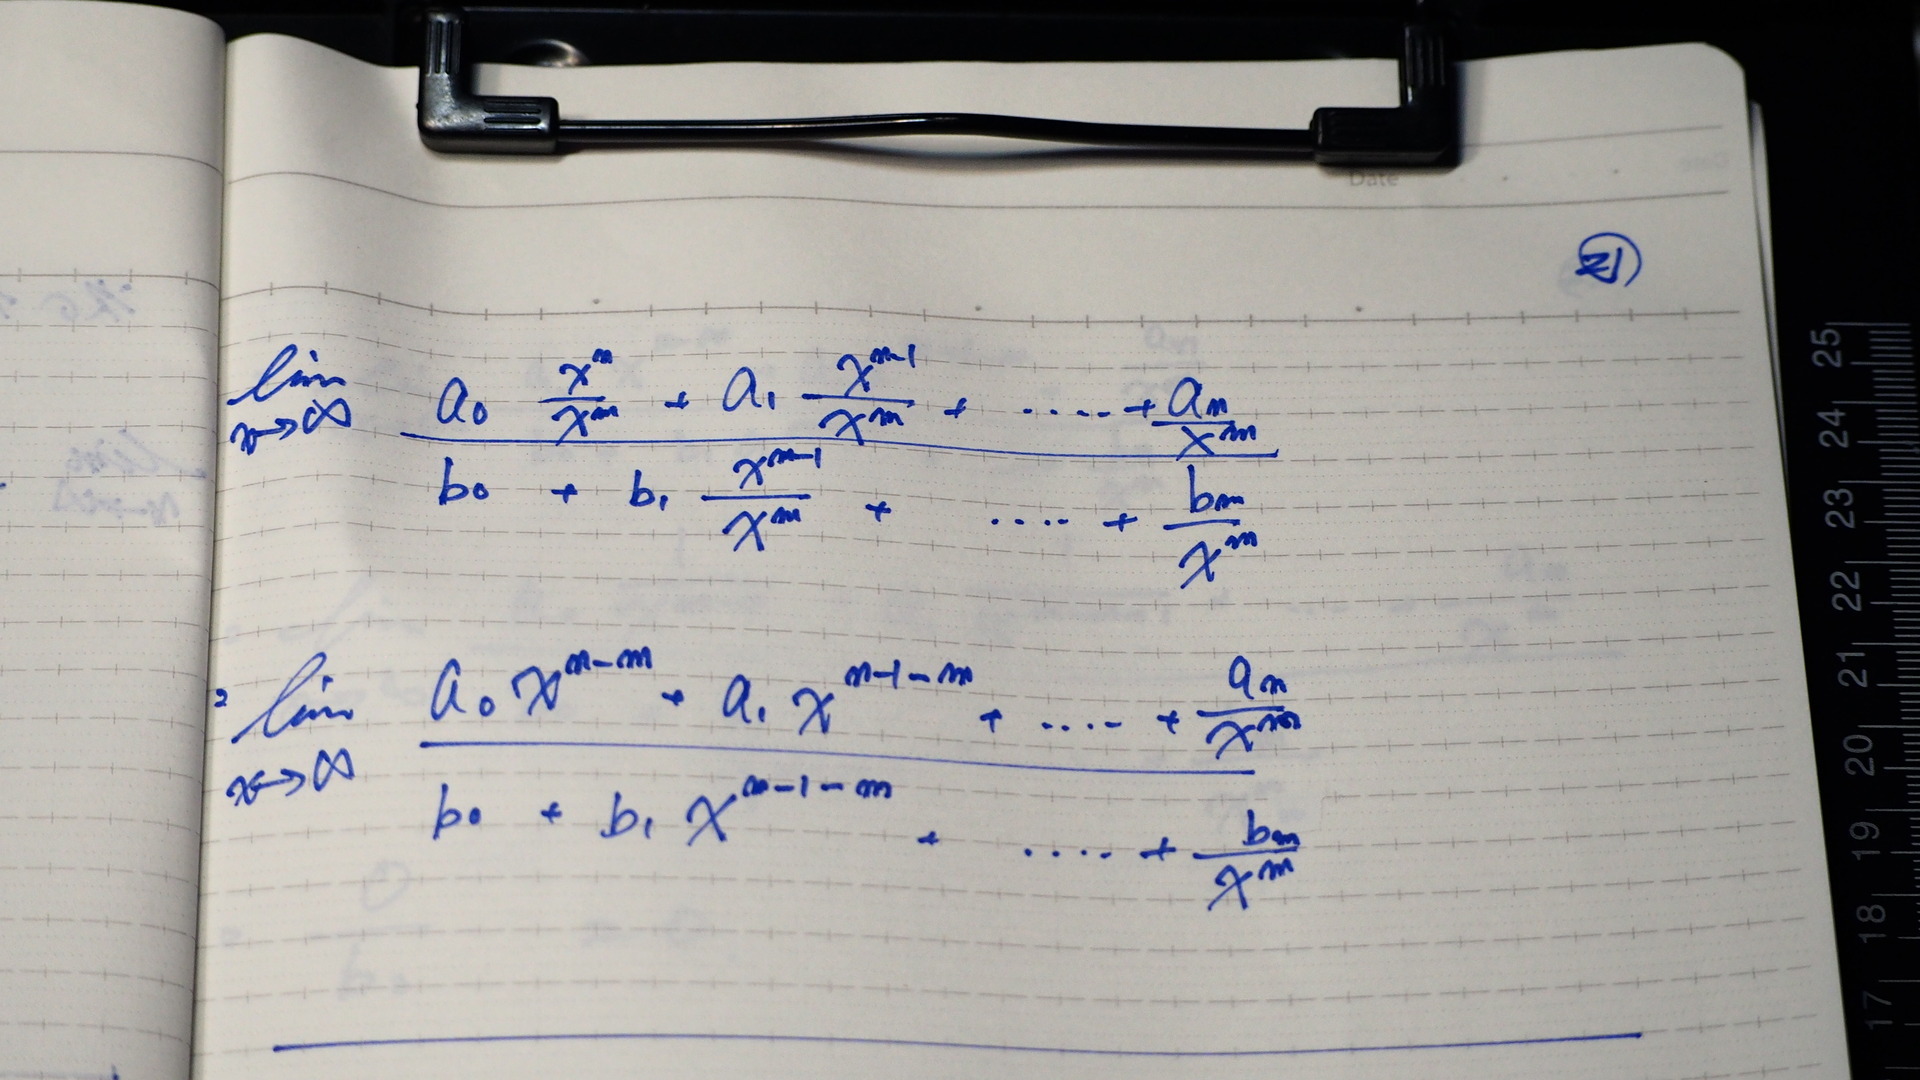 Date
21
lim x→∞ (a₀ xⁿ/xᵐ + a₁ xⁿ⁻¹/xᵐ + ..... + aₙ/xᵐ) / (b₀ + b₁ xᵐ⁻¹/xᵐ + .... + bₘ/xᵐ)
= lim x→∞ (a₀ xⁿ⁻ᵐ + a₁ xⁿ⁻¹⁻ᵐ + ..... + aₙ/xᵐ) / (b₀ + b₁ xᵐ⁻¹⁻ᵐ + ..... + bₘ/xᵐ)
25
24
23
22
21
20
19
18
17